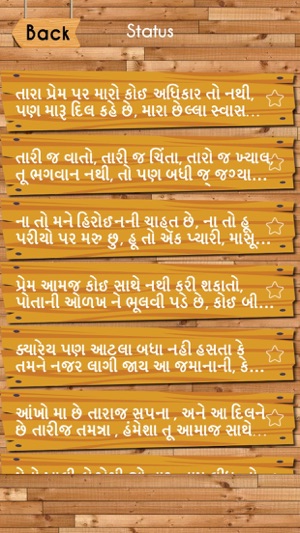 Back
Status
તારા પ્રેમ પર મારો કોઈ અધિકાર તો નથી,
પણ મારૂ દિલ કહે છે, મારા છેલ્લા સ્વાસ...
તારી જ વાતો, તારી જ ચિંતા, તારો જ ખ્યાલ,
તૂ ભગવાન નથી, તો પણ બધી જ જગ્યા...
ના તો મને હિરોઈનની ચાહત છે, ના તો હૂ
પરીયો પર મરુ છુ, હૂ તો ઍક પ્યારી, માસૂ...
પ્રેમ આમજ કોઈ સાથે નથી કરી શકાતો,
પોતાની ઓળખ ને ભૂલવી પડે છે, કોઈ બી...
ક્યારેય પણ આટલા બધા નહી હસતા કે
તમને નજર લાગી જાય આ જમાનાની, કે...
આંખો મા છે તારાજ સપના , અને આ દિલને
છે તારીજ તમન્ના , હંમેશા તૂ આમાજ સાથે...